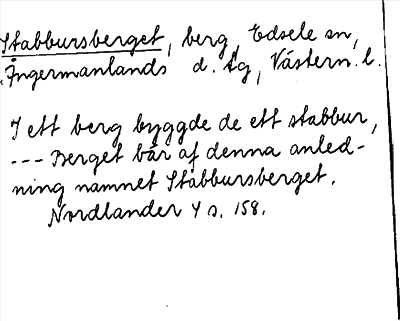 Stabbursberget, berg, Edsele sn,
Ångermanlands d. tg, Västern. l.
I ett berg byggde de ett stabbur,
--- Berget bär af denna anled-
ning namnet Stabbursberget.
Nordlander 4 s. 158.